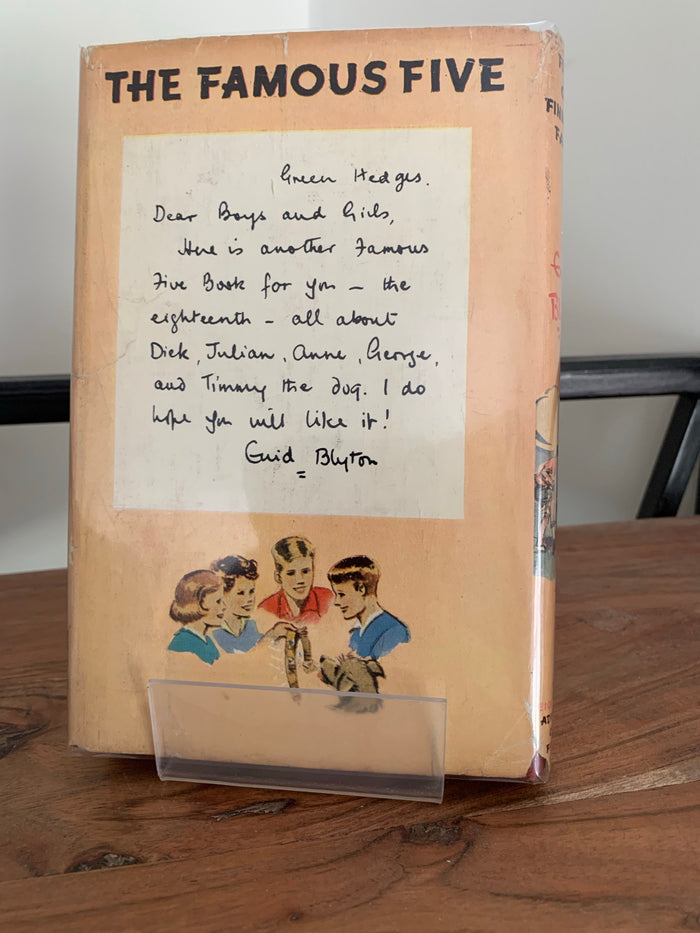 THE FAMOUS FIVE
Green Hedges.
Dear Boys and Girls,
Here is another Famous
Five Book for you – the
eighteenth – all about
Dick, Julian, Anne, George,
and Timmy the dog. I do
hope you will like it!
Enid Blyton